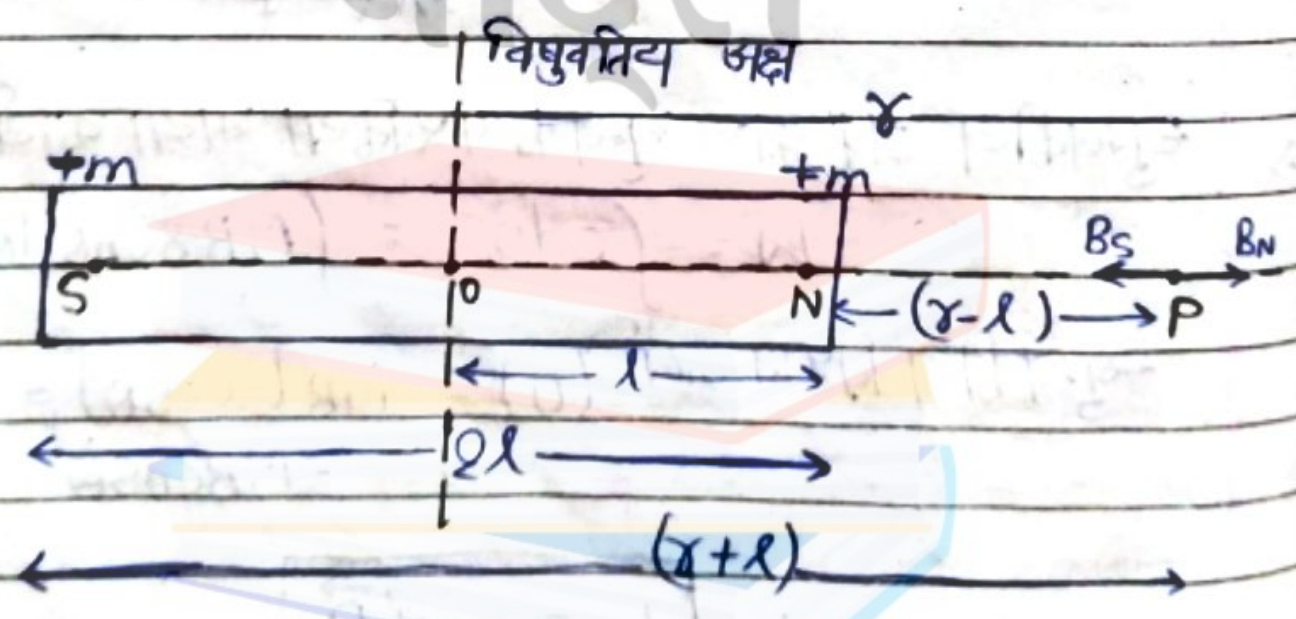 विषुवतिय अक्ष
r
+m +m
BS BN
S O N (r-l) P
l
2l
(r+l)